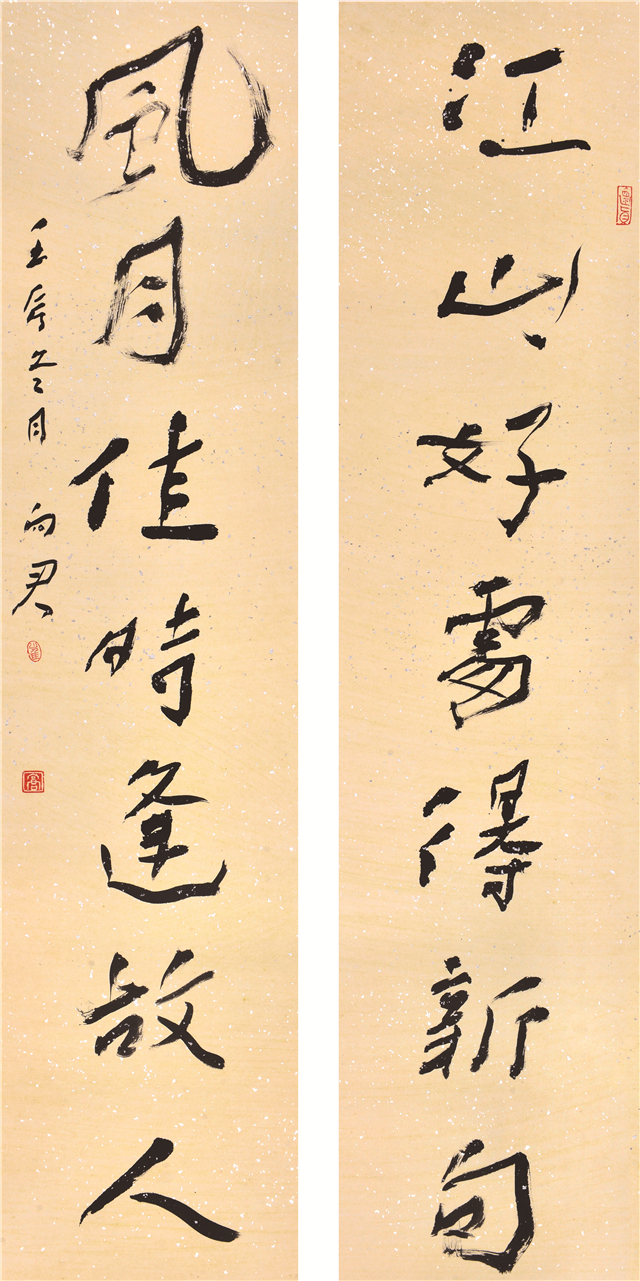 江山好處得新句
風月佳時逢故人
壬辰冬月 向君